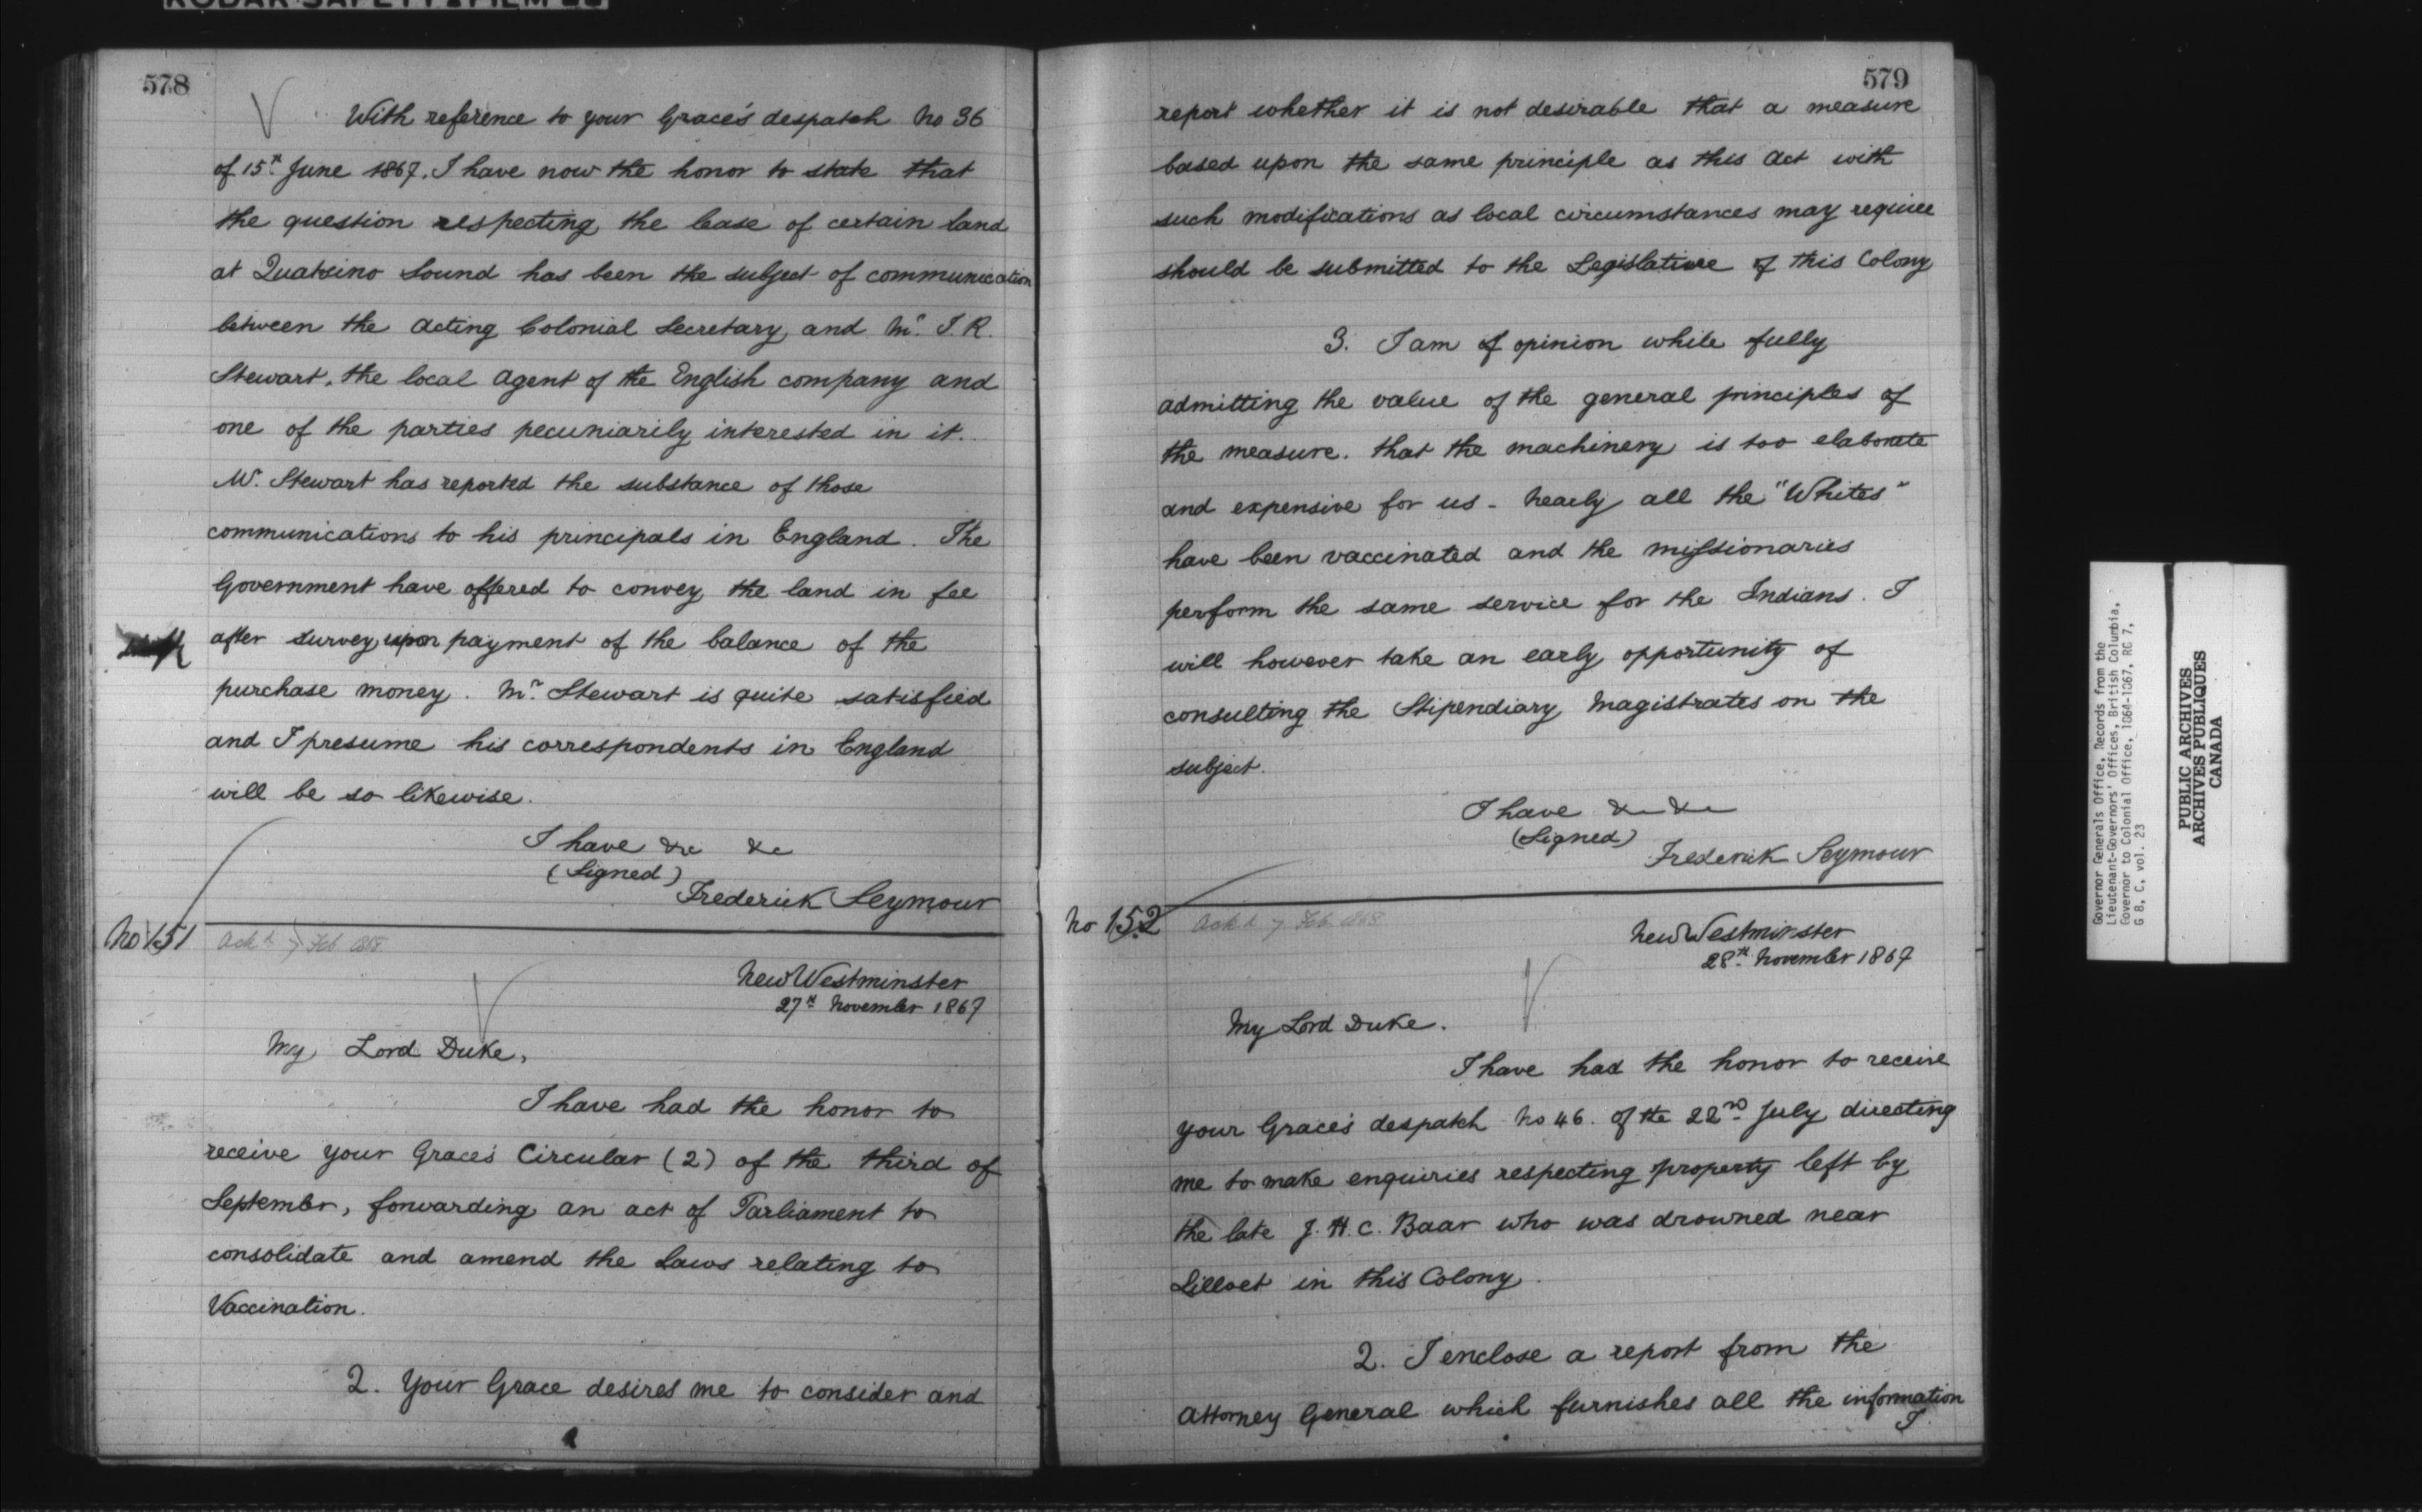 KODAK SAFETY FILM
578
With reference to your Grace's despatch No 36
of 15th June 1867. I have now the honor to state that
the question respecting the lease of certain land
at Quatsino Sound has been the subject of communication
between the Acting Colonial Secretary and Mr. J. R.
Stewart, the local Agent of the English company and
one of the parties pecuniarily interested in it.
Mr. Stewart has reported the substance of those
communications to his principals in England. The
Government have offered to convey the land in fee
after survey upon payment of the balance of the
purchase money. Mr. Stewart is quite satisfied
and I presume his correspondents in England
will be so likewise.
I have &c &c
(Signed)
Frederick Seymour
No 151
Ackd 7 Feb 1868
New Westminster
27th November 1867
My Lord Duke,
I have had the honor to
receive your Grace's Circular (2) of the third of
September, forwarding an act of Parliament to
consolidate and amend the Laws relating to
Vaccination.
2. Your Grace desires me to consider and
579
report whether it is not desirable that a measure
based upon the same principle as this Act with
such modifications as local circumstances may require
should be submitted to the Legislature of this Colony
3. I am of opinion while fully
admitting the value of the general principles of
the measure. that the machinery is too elaborate
and expensive for us - Nearly all the "Whites"
have been vaccinated and the missionaries
perform the same service for the Indians. I
will however take an early opportunity of
consulting the Stipendiary Magistrates on the
subject.
I have &c &c
(Signed)
Frederick Seymour
No 152
Ackd 7 Feb 1868
New Westminster
28th November 1867
My Lord Duke.
I have had the honor to receive
your Grace's despatch No 46. of the 22nd July directing
me to make enquiries respecting property left by
the late J. H. C. Baar who was drowned near
Lilloet in this Colony.
2. I enclose a report from the
Attorney General which furnishes all the information
I
Governor Generals Office, Records from the
Lieutenant-Governors' Offices, British Columbia,
Governor to Colonial Office, 1864-1867, RG 7,
G 8, C, vol. 23
PUBLIC ARCHIVES
ARCHIVES PUBLIQUES
CANADA